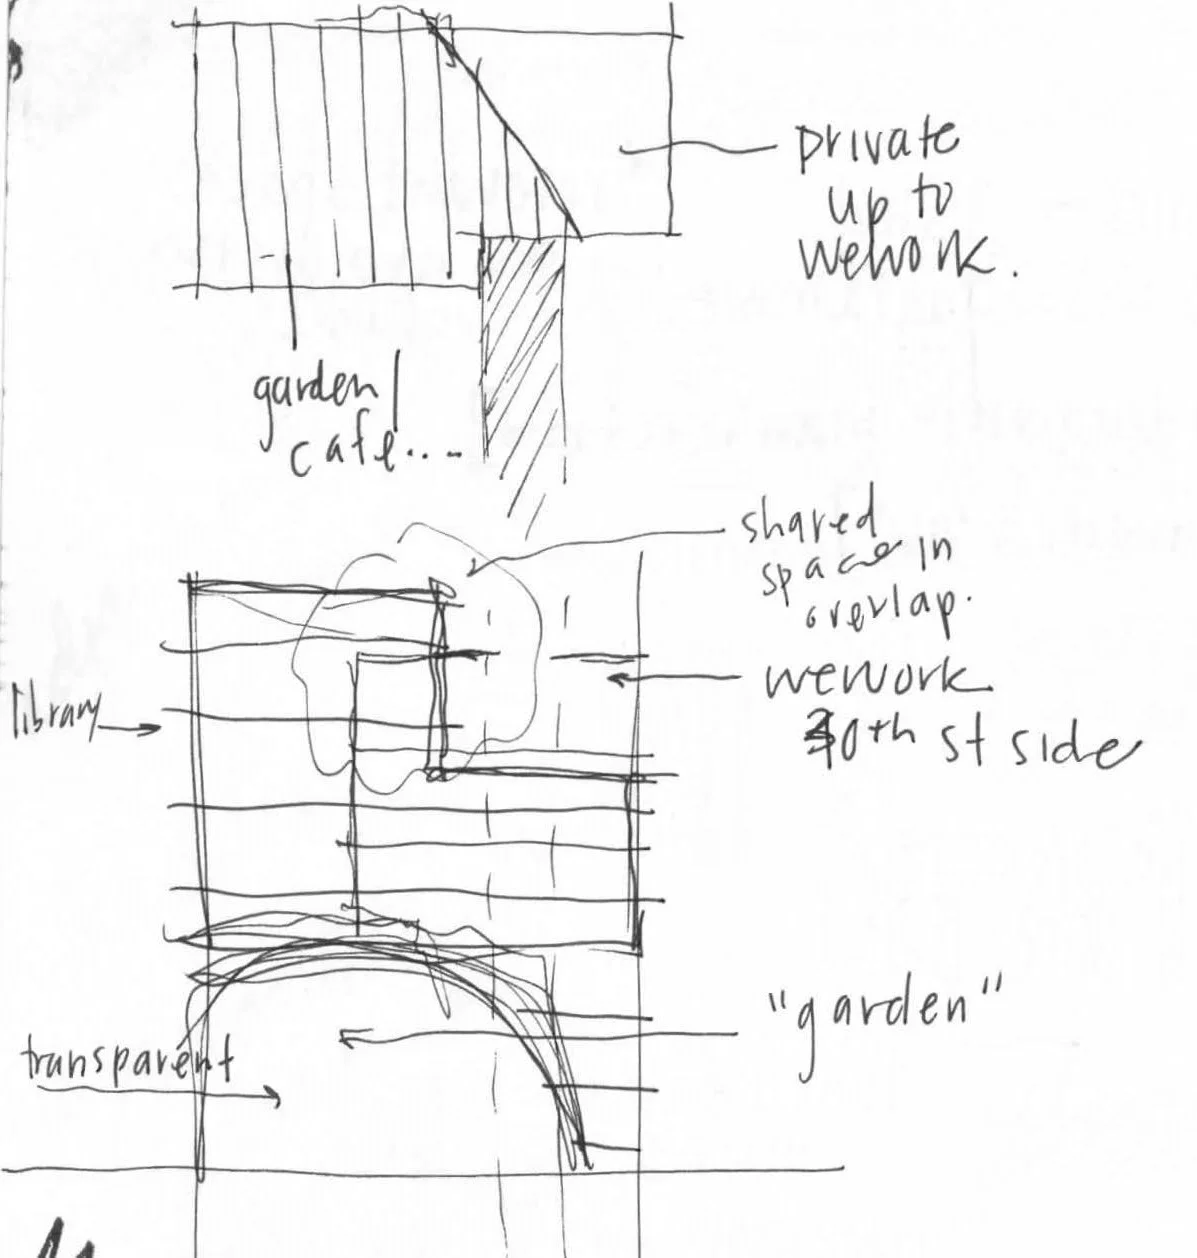 private
up to
wework.
garden/
cafe....
shared
space in
overlap.
wework
30th st side
library
"garden"
transparent